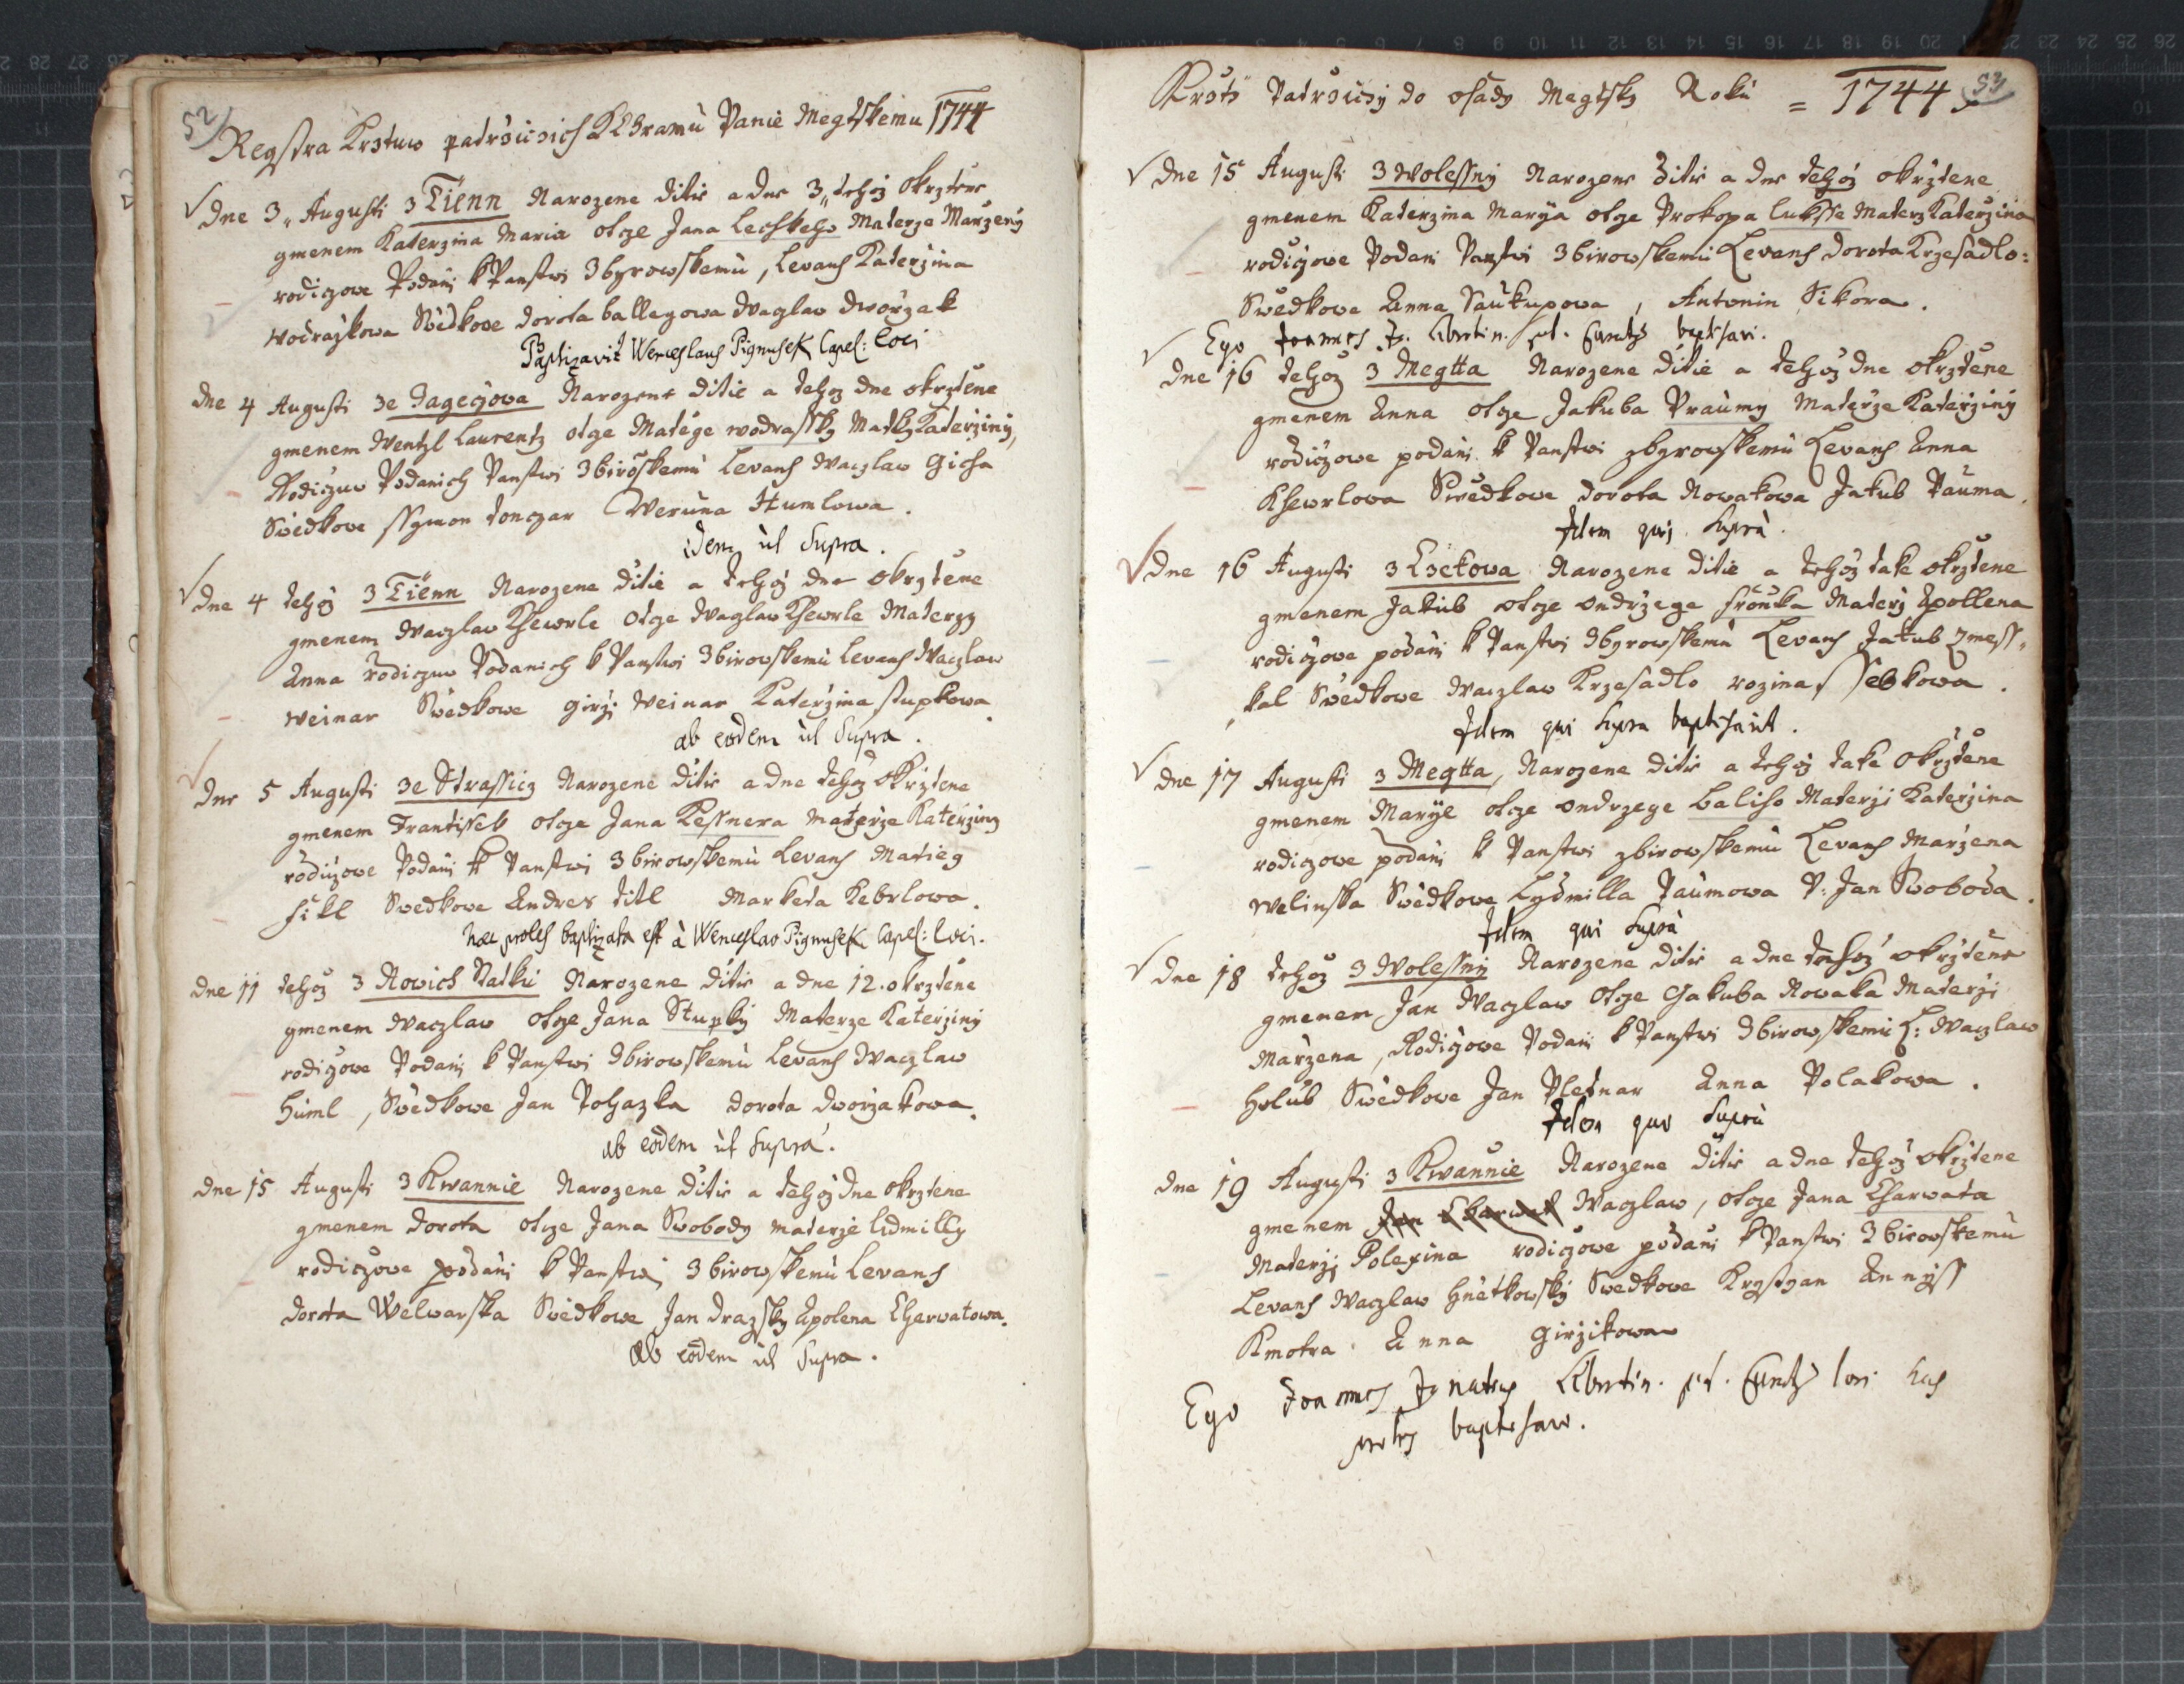 52
Regstra Krztuw patrzicich K Chramu Panie Megtskemu 1744
dne 3 Augusti z Tienn Narozene ditie a dne 3 tehoz okrztene
gmenem Katerzina Maria otcze Jana Lechskeho Materze Marzeny
rodiczowe Podani k Panstwi Zbyrowskemu, Levans Katerzina
wodrazkowa Swiedkowe dorota ballegowa Waczlaw dworzak
Baptizavit Wenceslaus Pignusek Capel: Loci
dne 4 Augusti ze Jageczowa Narozene ditie a tehoz dne okrztene
gmenem Wentzl Laurentz otcze Matege wodrassky Matky Katerziny,
Rodiczuw Podanich Panstwi Zbiroskemu Levans Waczlaw Gicha
Swiedkove ssymon tonczar Weruna Humlowa.
idem ut Supra.
dne 4 tehoz z Tienn Narozene ditie a tehoz dne okrztene
gmenem Waczlaw Khewrle Otcze Waczlaw Khewrle Materzy
Anna rodiczuw Podanich k Panstwi Zbirowskemu Levans Waczlaw
Weinar Swiedkowe Girzi Weinar Katerzina stupkowa.
ab eodem ut Supra.
dne 5 Augusti ze Strassicz Narozene ditie a dne tehoz okrztene
gmenem Frantissek otcze Jana Kessnera Materze Katerziny
rodiczowe Podani k Panstwi Zbirowskemu Levans Matieg
sikl Swedkowe Andres titl Marketa Keberlowa.
haec proles baptizata est à Wenceslao Pignusek Capel: Loci.
dne 11 tehoz z Nowich Natku Narozene ditie a dne 12. okrztene
gmenem Waczlaw otcze Jana Stupky Materze Katerziny
rodiczowe Podani k Panstwi Zbirowskemu Levans Waczlaw
Huml, Swiedkowe Jan Pohazka dorota dworzakowa.
ab eodem ut Supra.
dne 15 Augusti z Kwannie Narozene ditie a tehoz dne okrztene
gmenem Dorota otcze Jana Swobody Materze Lidmilly
rodiczowe podani k Panstwi Zbirowskemu Levans
dorota Welwarska Swiedkowe Jan drazsky Apolena Charwatowa.
Ab eodem ut Supra.
53
Krztů Patrzicy do osady Megtsky Roku = 1744
dne 15 Augusti z Wolessny Narozene ditie a dne tehoz okrztene
gmenem Katerzina Marya otcze Prokopa Luksse Materz Katerzina
rodiczowe Podani Panstwi Zbirowskemu Levans Dorota Krzesadlo:
Swedkowe Anna Saukupowa, Antonin Sikora.
Ego Joannes Ig. Libertin. p.t. Curatus baptisavi.
dne 16 tehoz z Megtta Narozene ditie a tehoz dne okrztene
gmenem Anna otcze Jakuba Praumy Materze Katerziny
rodiczowe podani k Panstwi zbyrowskemu Levans Anna
Khewrlova Swedkowe Dorota Nowakowa Jakub Pauma.
Idem qui supra.
dne 16 Augusti z Czekowa Narozene ditie a tehoz take okrztene
gmenem Jakub otcze Ondrzege srouka Materz Apollena
rodiczowe podani k Panstwi Zbyrowskemu Levans Jakub Zmess,
kal Swedkowe Waczlaw Krzesadlo rozina Ssebkowa.
Idem qui supra baptisavit.
dne 17 Augusti z Megtta, Narozene ditie a tehoz take okrztene
gmenem Marye otcze Ondrzege Baliho Materzi Katerzina
rodiczowe podani k Panstwi zbirowskemu Levans Marzena
Welinska Swedkowe Lydmilla Paumowa P: Jan Swoboda.
Idem qui supra
dne 18 tehoz z Wolessny Narozene ditie a dne tehoz okrztene
gmenem Jan Waczlaw Otcze Gakuba Nowaka Materzi
Marzena, Rodiczowe Podani k Panstwi Zbirowskemu L: Waczlaw
Holub Swedkowe Jan Pletnar Anna Polakowa.
Idem qui supra
dne 19 Augusti z Kwannie Narozene ditie a dne tehoz okrztene
gmenem Jan Charwat Waczlaw, otcze Jana Charwata
Materzj Polexina rodiczowe podani k Panstwi Zbirowskemu
Levans Waczlaw Hnětkowsky Swedkowe Krystyan Annyss
Kmotra Anna Girzikowa
Ego Joannes Ignatius Libertin. p.t. Curatus loci has
proles baptisavi.